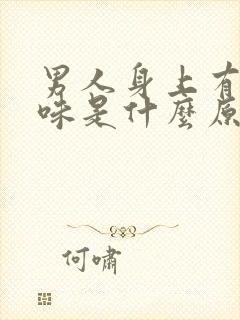 男人身上有
味是什麼原
何嘯